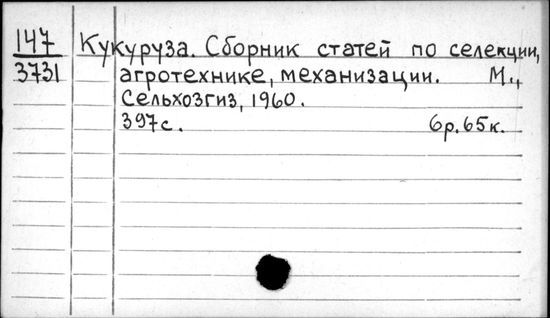 147 Кукуруза. Сборник статей по селекции,
3731 агротехнике, механизации. М.,
Сельхозгиз, 1960.
397с. 6р.65к.